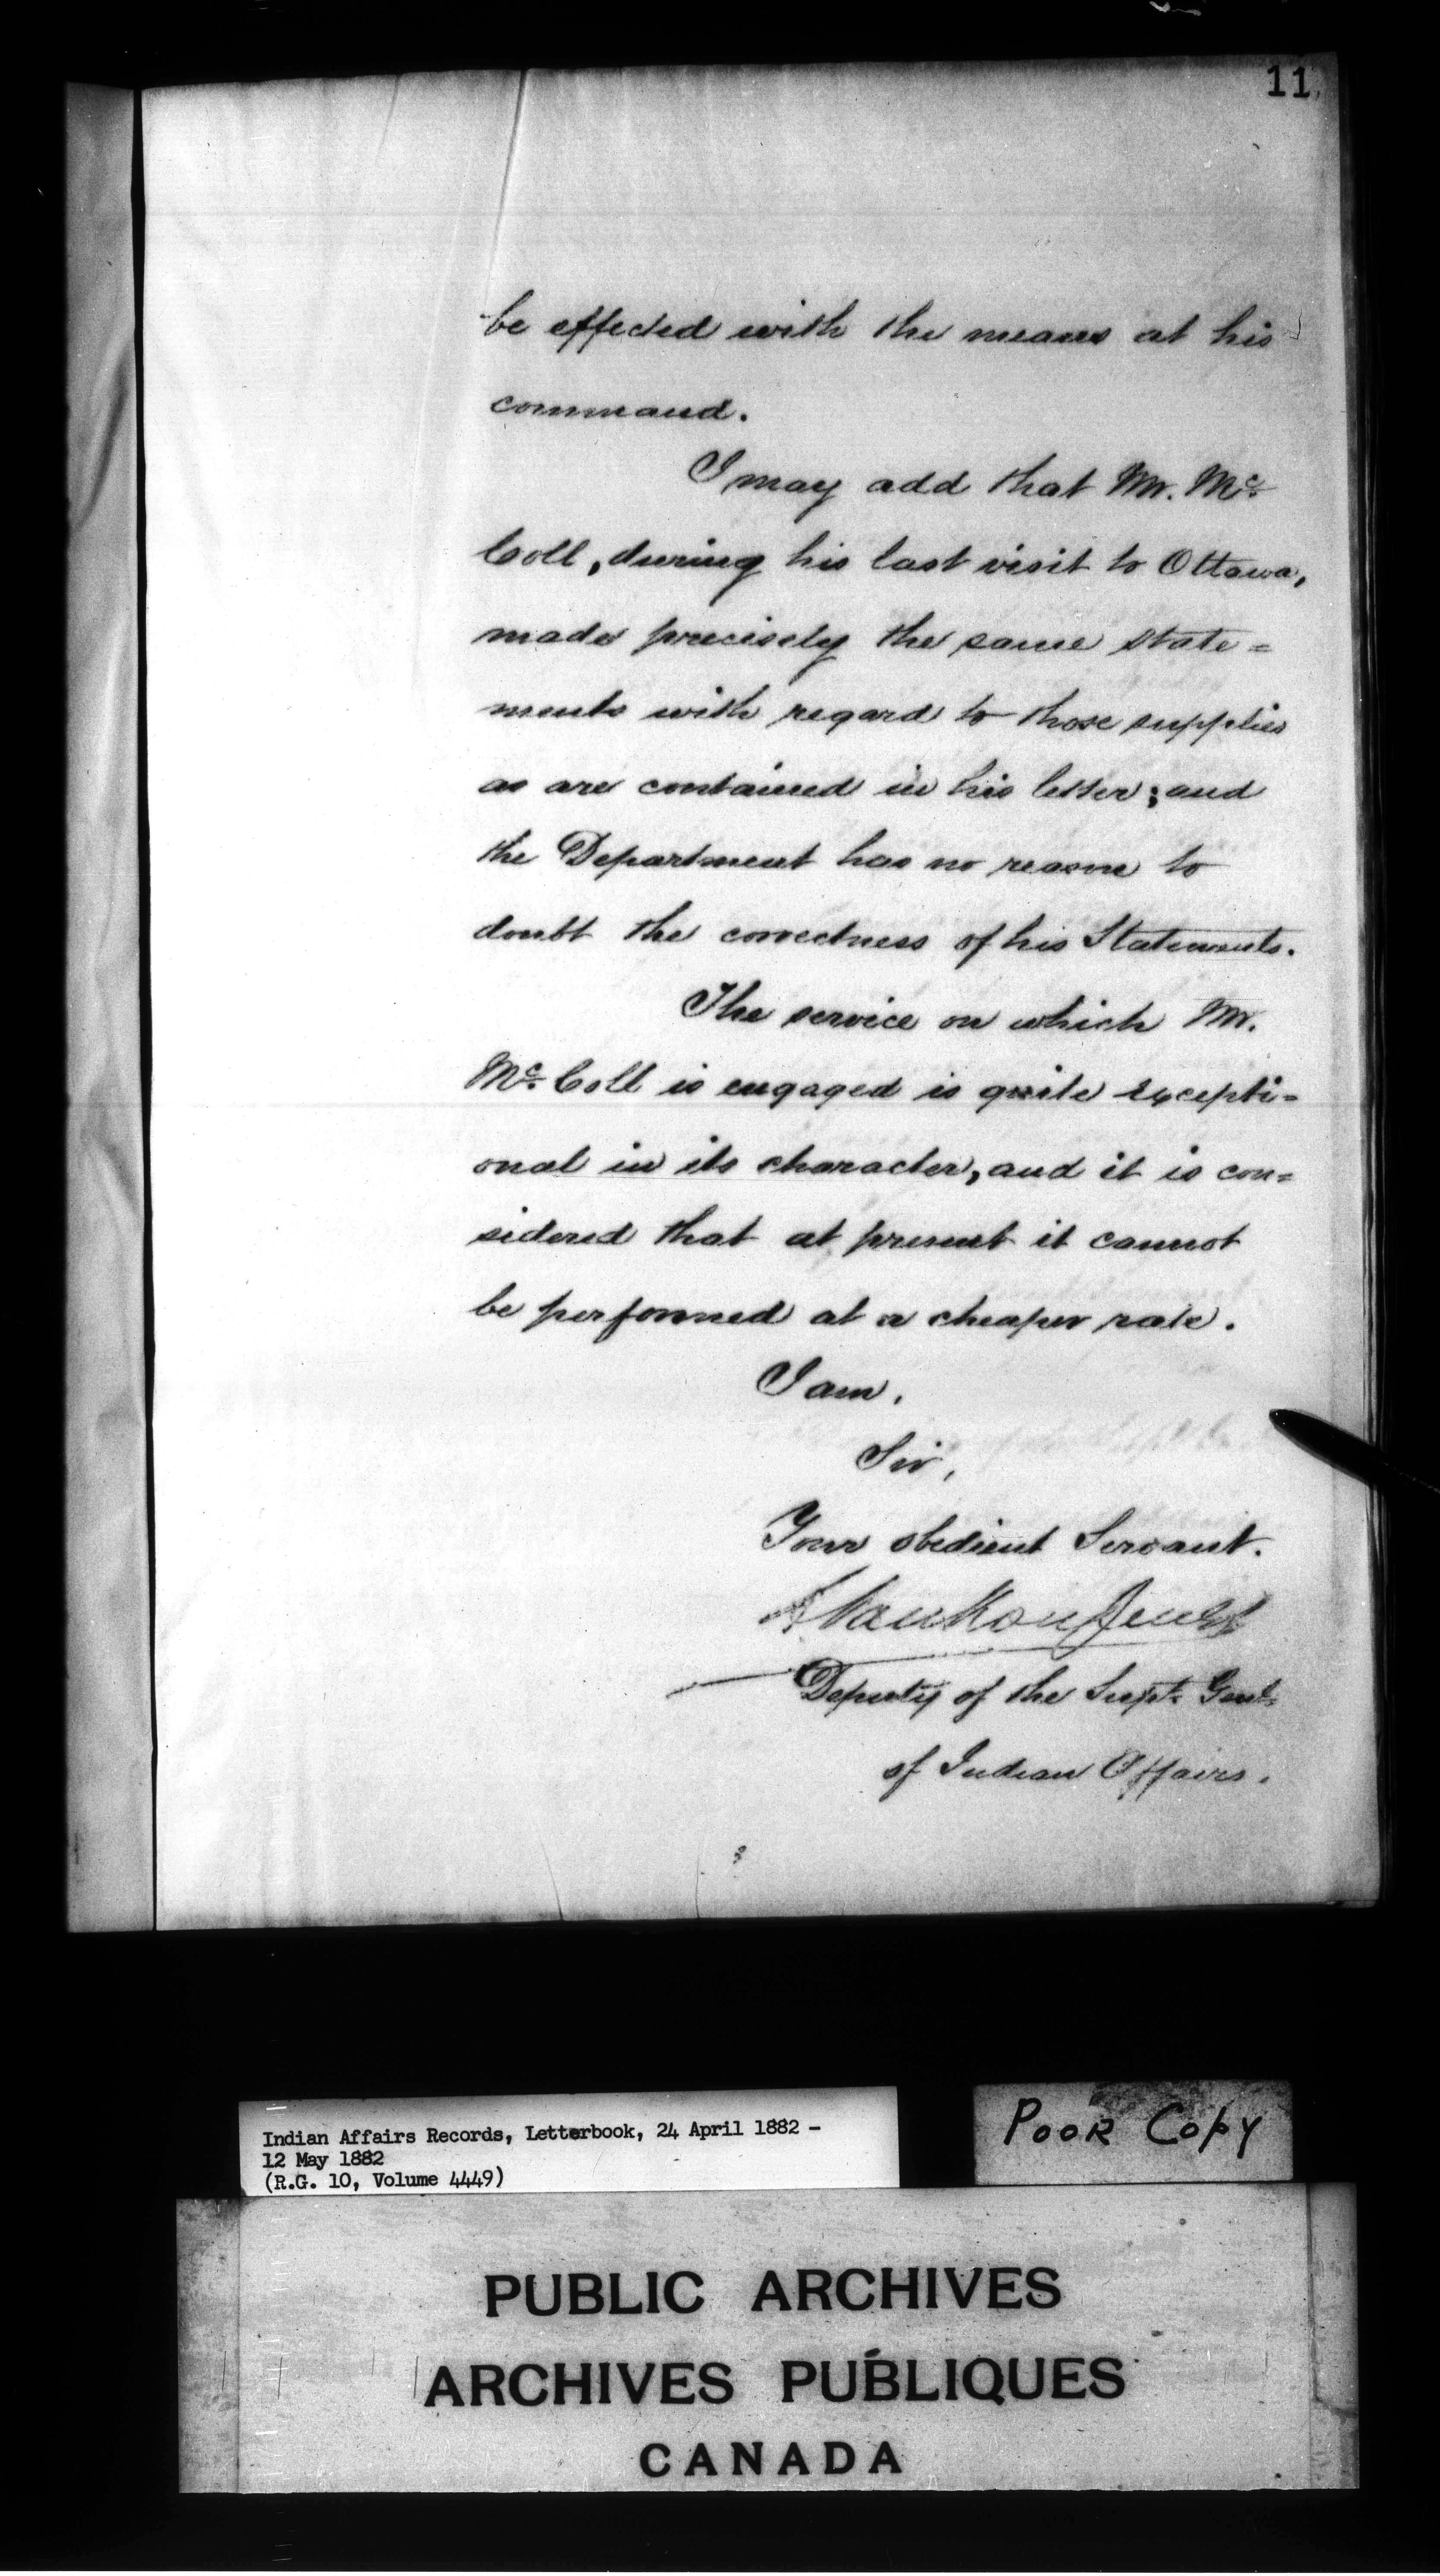 11,
be effected with the means at his
command.
I may add that Mr. Mc.
Coll, during his last visit to Ottawa,
made precisely the same state=
ments with regard to those supplies
as are contained in his letter; and
the Department has no reason to
doubt the correctness of his Statements.
The service on which Mr.
Mc. Coll is engaged is quite excepti=
onal in its character, and it is con=
sidered that at present it cannot
be performed at a cheaper rate.
I am,
Sir,
Your obedient Servant.
L VanKoughnet
Deputy of the Supt. Genl.
of Indian Affairs.
Indian Affairs Records, Letterbook, 24 April 1882 -
12 May 1882
(R.G. 10, Volume 4449)
POOR COPY
PUBLIC ARCHIVES
ARCHIVES PUBLIQUES
CANADA